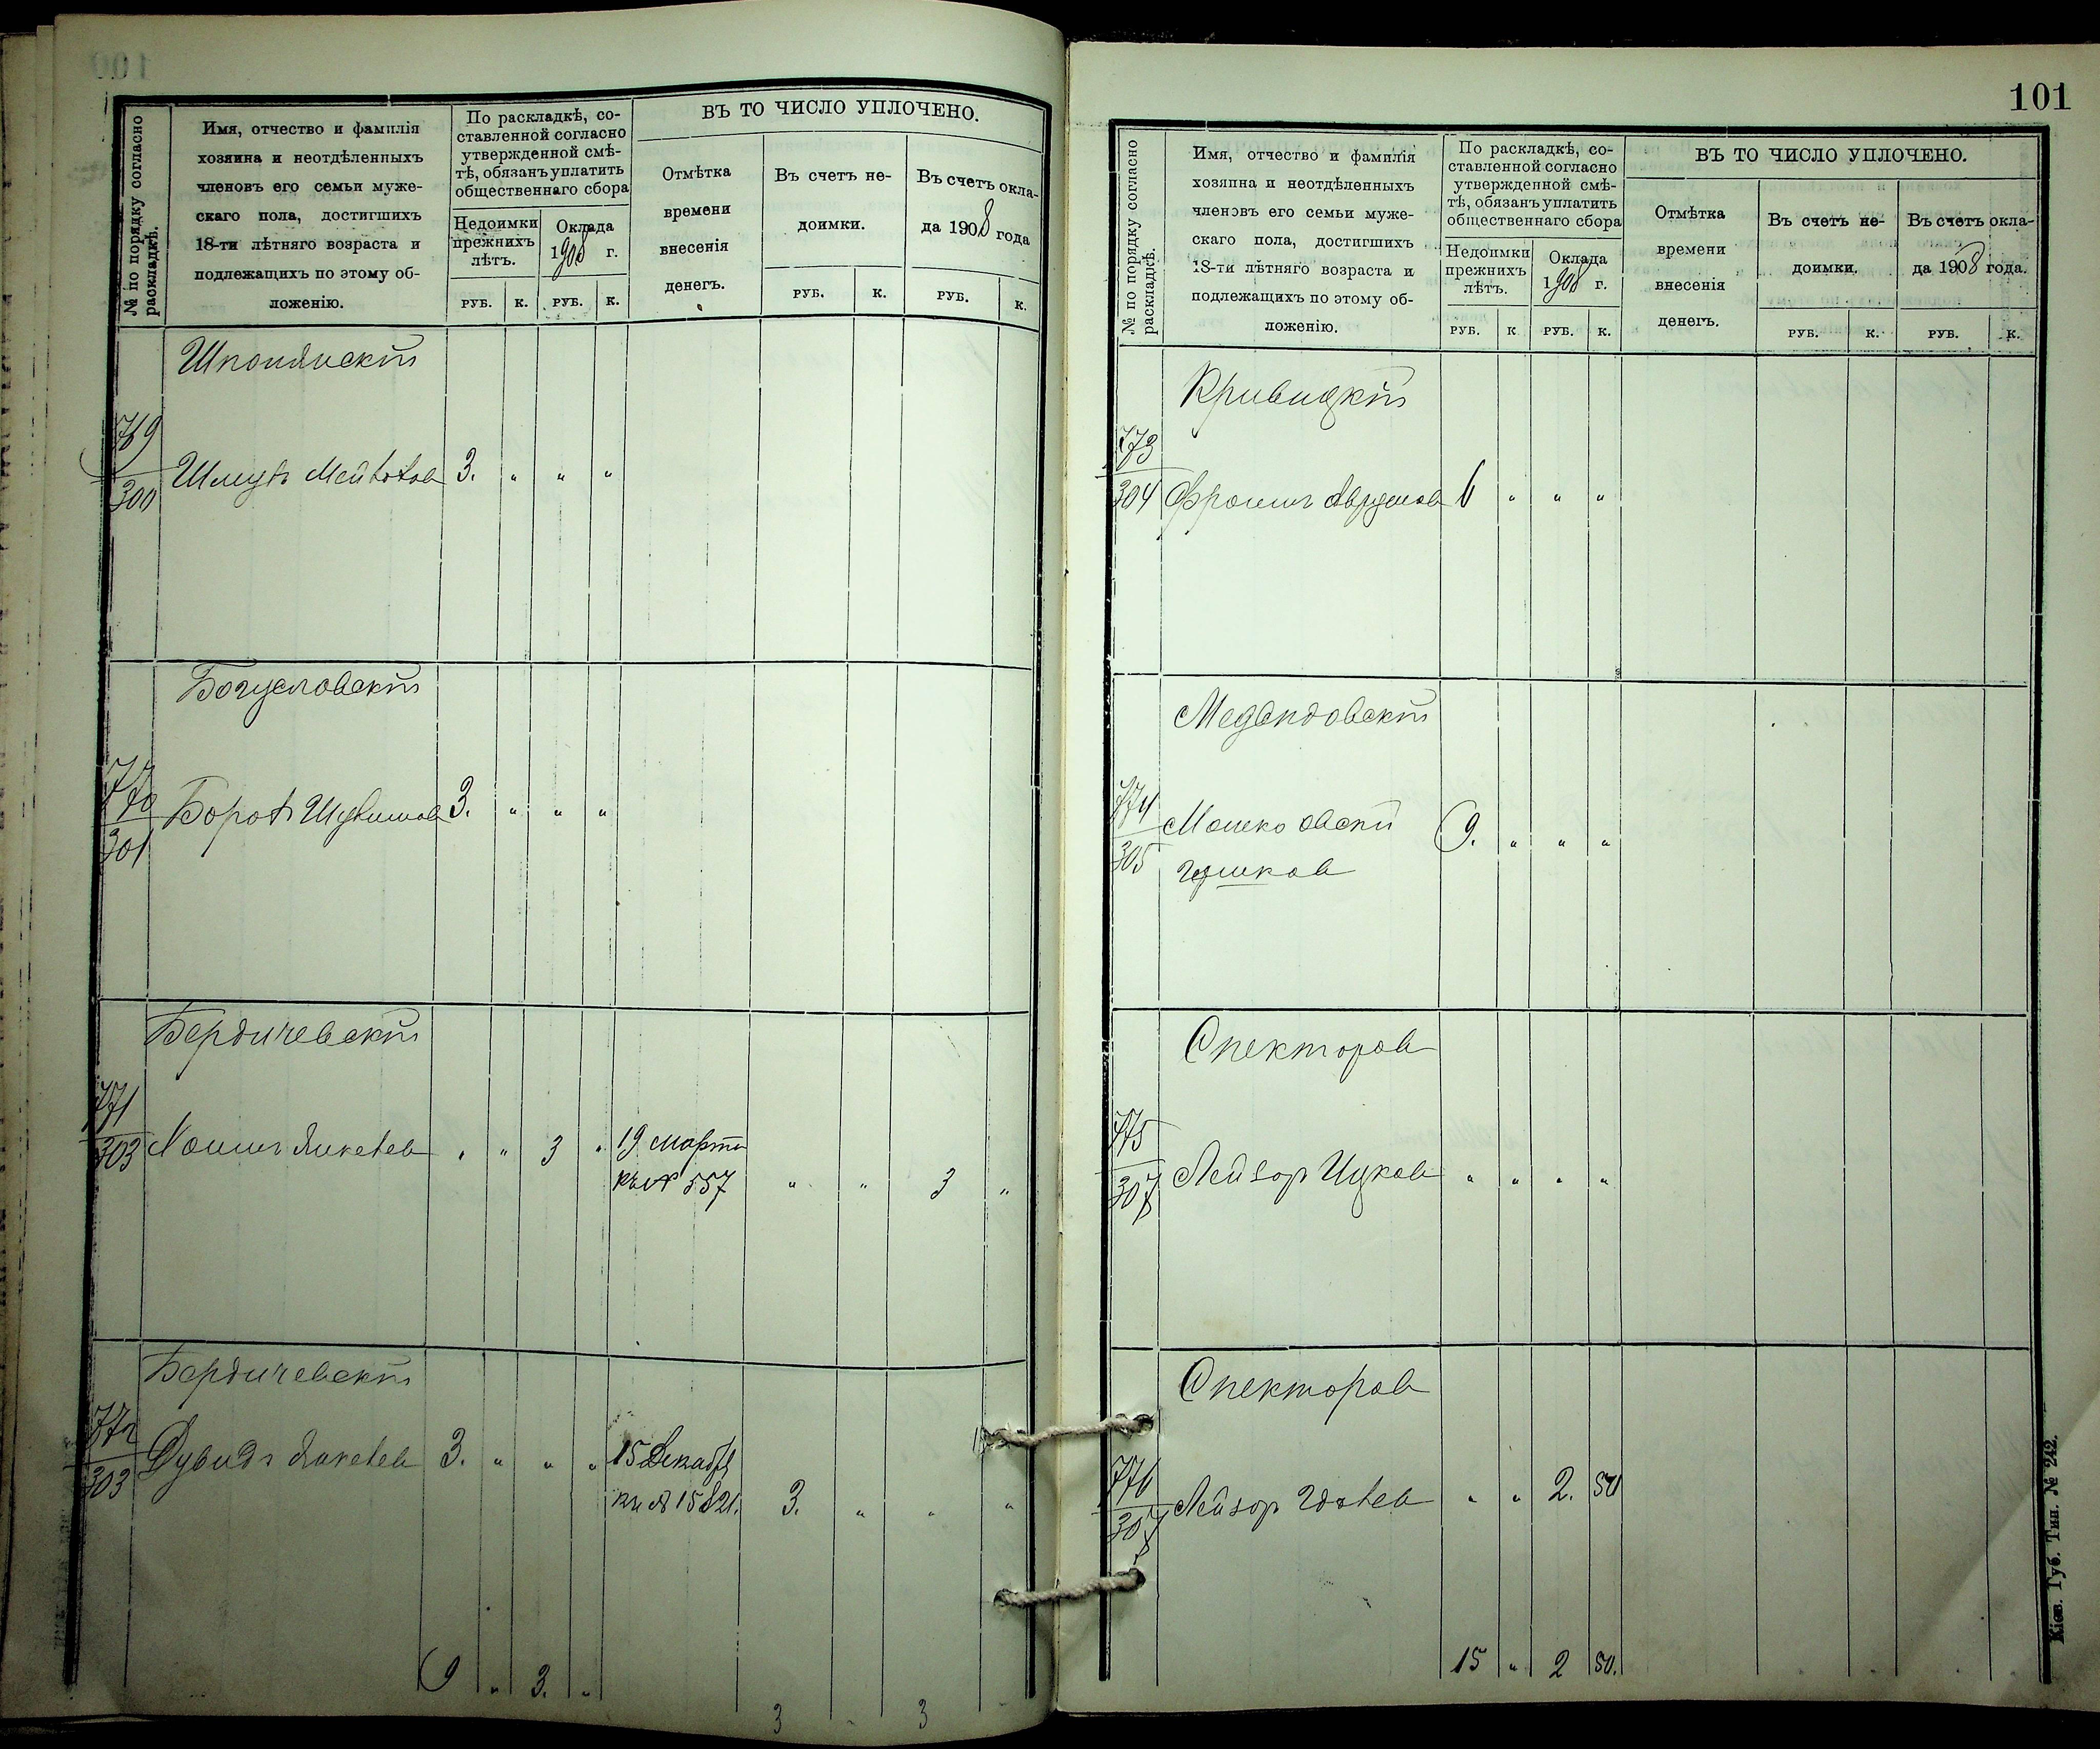 № по порядку согласно раскладкѣ.
Имя, отчество и фамилія
хозяина и неотдѣленныхъ
членовъ его семьи муже-
скаго пола, достигшихъ
18-ти лѣтняго возраста и
подлежащихъ по этому об-
ложенію.
По раскладкѣ, со-
ставленной согласно
утвержденной смѣ-
тѣ, обязанъ уплатить
общественнаго сбора
Недоимки
прежнихъ
лѣтъ.
Оклада
1908 г.
РУБ. К. РУБ. К.
ВЪ ТО ЧИСЛО УПЛОЧЕНО.
Отмѣтка
времени
внесенія
денегъ.
Въ счетъ не-
доимки.
РУБ. К.
Въ счетъ окла-
да 1908 года
РУБ. К.
Шполянскій
769
300
Шмуль 3. " " "
Богуславскій
770
301
Борох 3. " " "
Бердичевскій
771
303
Хаимъ Янкелев " " 3 " 19 марта
кв № 557 " " 3 "
Бердичевскій
772
303
Дувидъ Янкелев 3. " " " 15 Декабря
кв № 15821. 3. " " "
9 " 3. "
3 " 3 "
101
№ по порядку согласно раскладкѣ.
Имя, отчество и фамилія
хозяина и неотдѣленныхъ
членовъ его семьи муже-
скаго пола, достигшихъ
18-ти лѣтняго возраста и
подлежащихъ по этому об-
ложенію.
По раскладкѣ, со-
ставленной согласно
утвержденной смѣ-
тѣ, обязанъ уплатить
общественнаго сбора
Недоимки
прежнихъ
лѣтъ.
Оклада
1908 г.
РУБ. К РУБ. К.
ВЪ ТО ЧИСЛО УПЛОЧЕНО.
Отмѣтка
времени
внесенія
денегъ.
Въ счетъ не-
доимки.
РУБ. К.
Въ счетъ окла-
да 1908 года.
РУБ. К.
Кривицкій
773
304
Фроимъ Аврумов 6 " " "
Медвидовскій
774
305
9. " " "
Спекторов
775
307
Лейзор Ицков " " " "
Спекторов
776
307
Лейзор " " 2. 50
15 " 2 50.
Кіев. Губ. Тип. № 242.